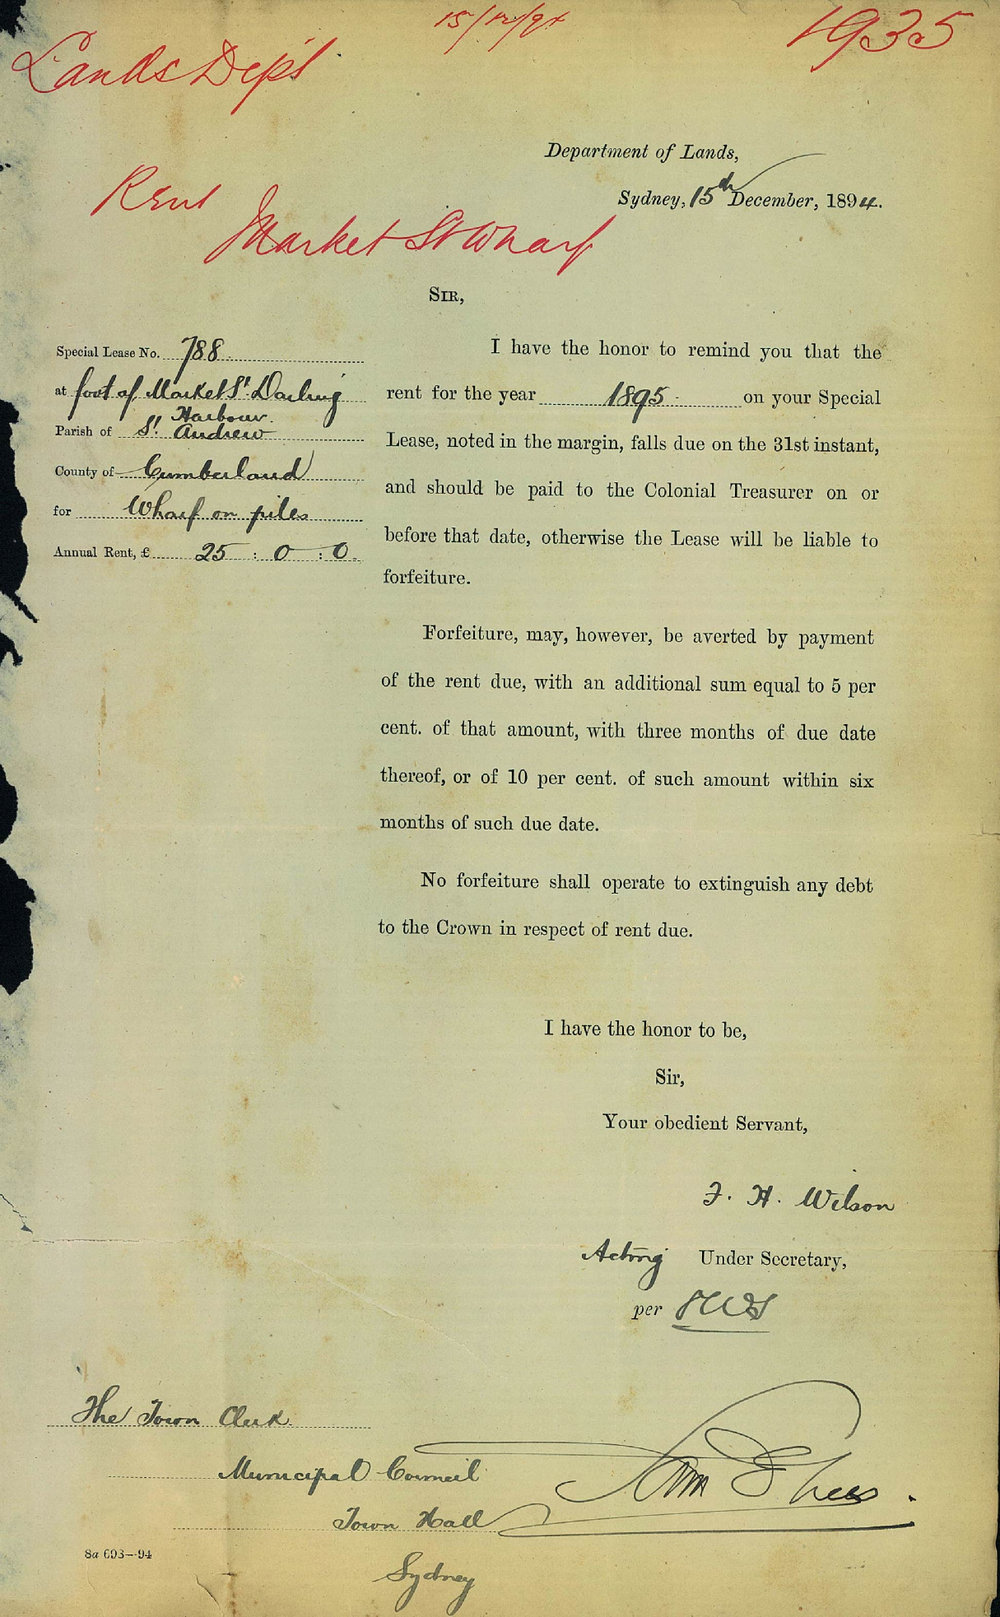 15/12/94
1935
Lands Dept
Department of Lands,
Sydney, 15th December, 1894.
Rent
Market St Wharf
SIR,
Special Lease No. 788
at foot of Market St. Darling
Harbour.
Parish of St. Andrew
County of Cumberland
for Wharf on piles
Annual Rent, £ 25 : 0 : 0.
I have the honor to remind you that the
rent for the year 1895 on your Special
Lease, noted in the margin, falls due on the 31st instant,
and should be paid to the Colonial Treasurer on or
before that date, otherwise the Lease will be liable to
forfeiture.
Forfeiture, may, however, be averted by payment
of the rent due, with an additional sum equal to 5 per
cent. of that amount, with three months of due date
thereof, or of 10 per cent. of such amount within six
months of such due date.
No forfeiture shall operate to extinguish any debt
to the Crown in respect of rent due.
I have the honor to be,
Sir,
Your obedient Servant,
F. H. Wilson
Acting Under Secretary,
per
The Town Clerk
Municipal Council
Town Hall
Sydney
8a 693—94